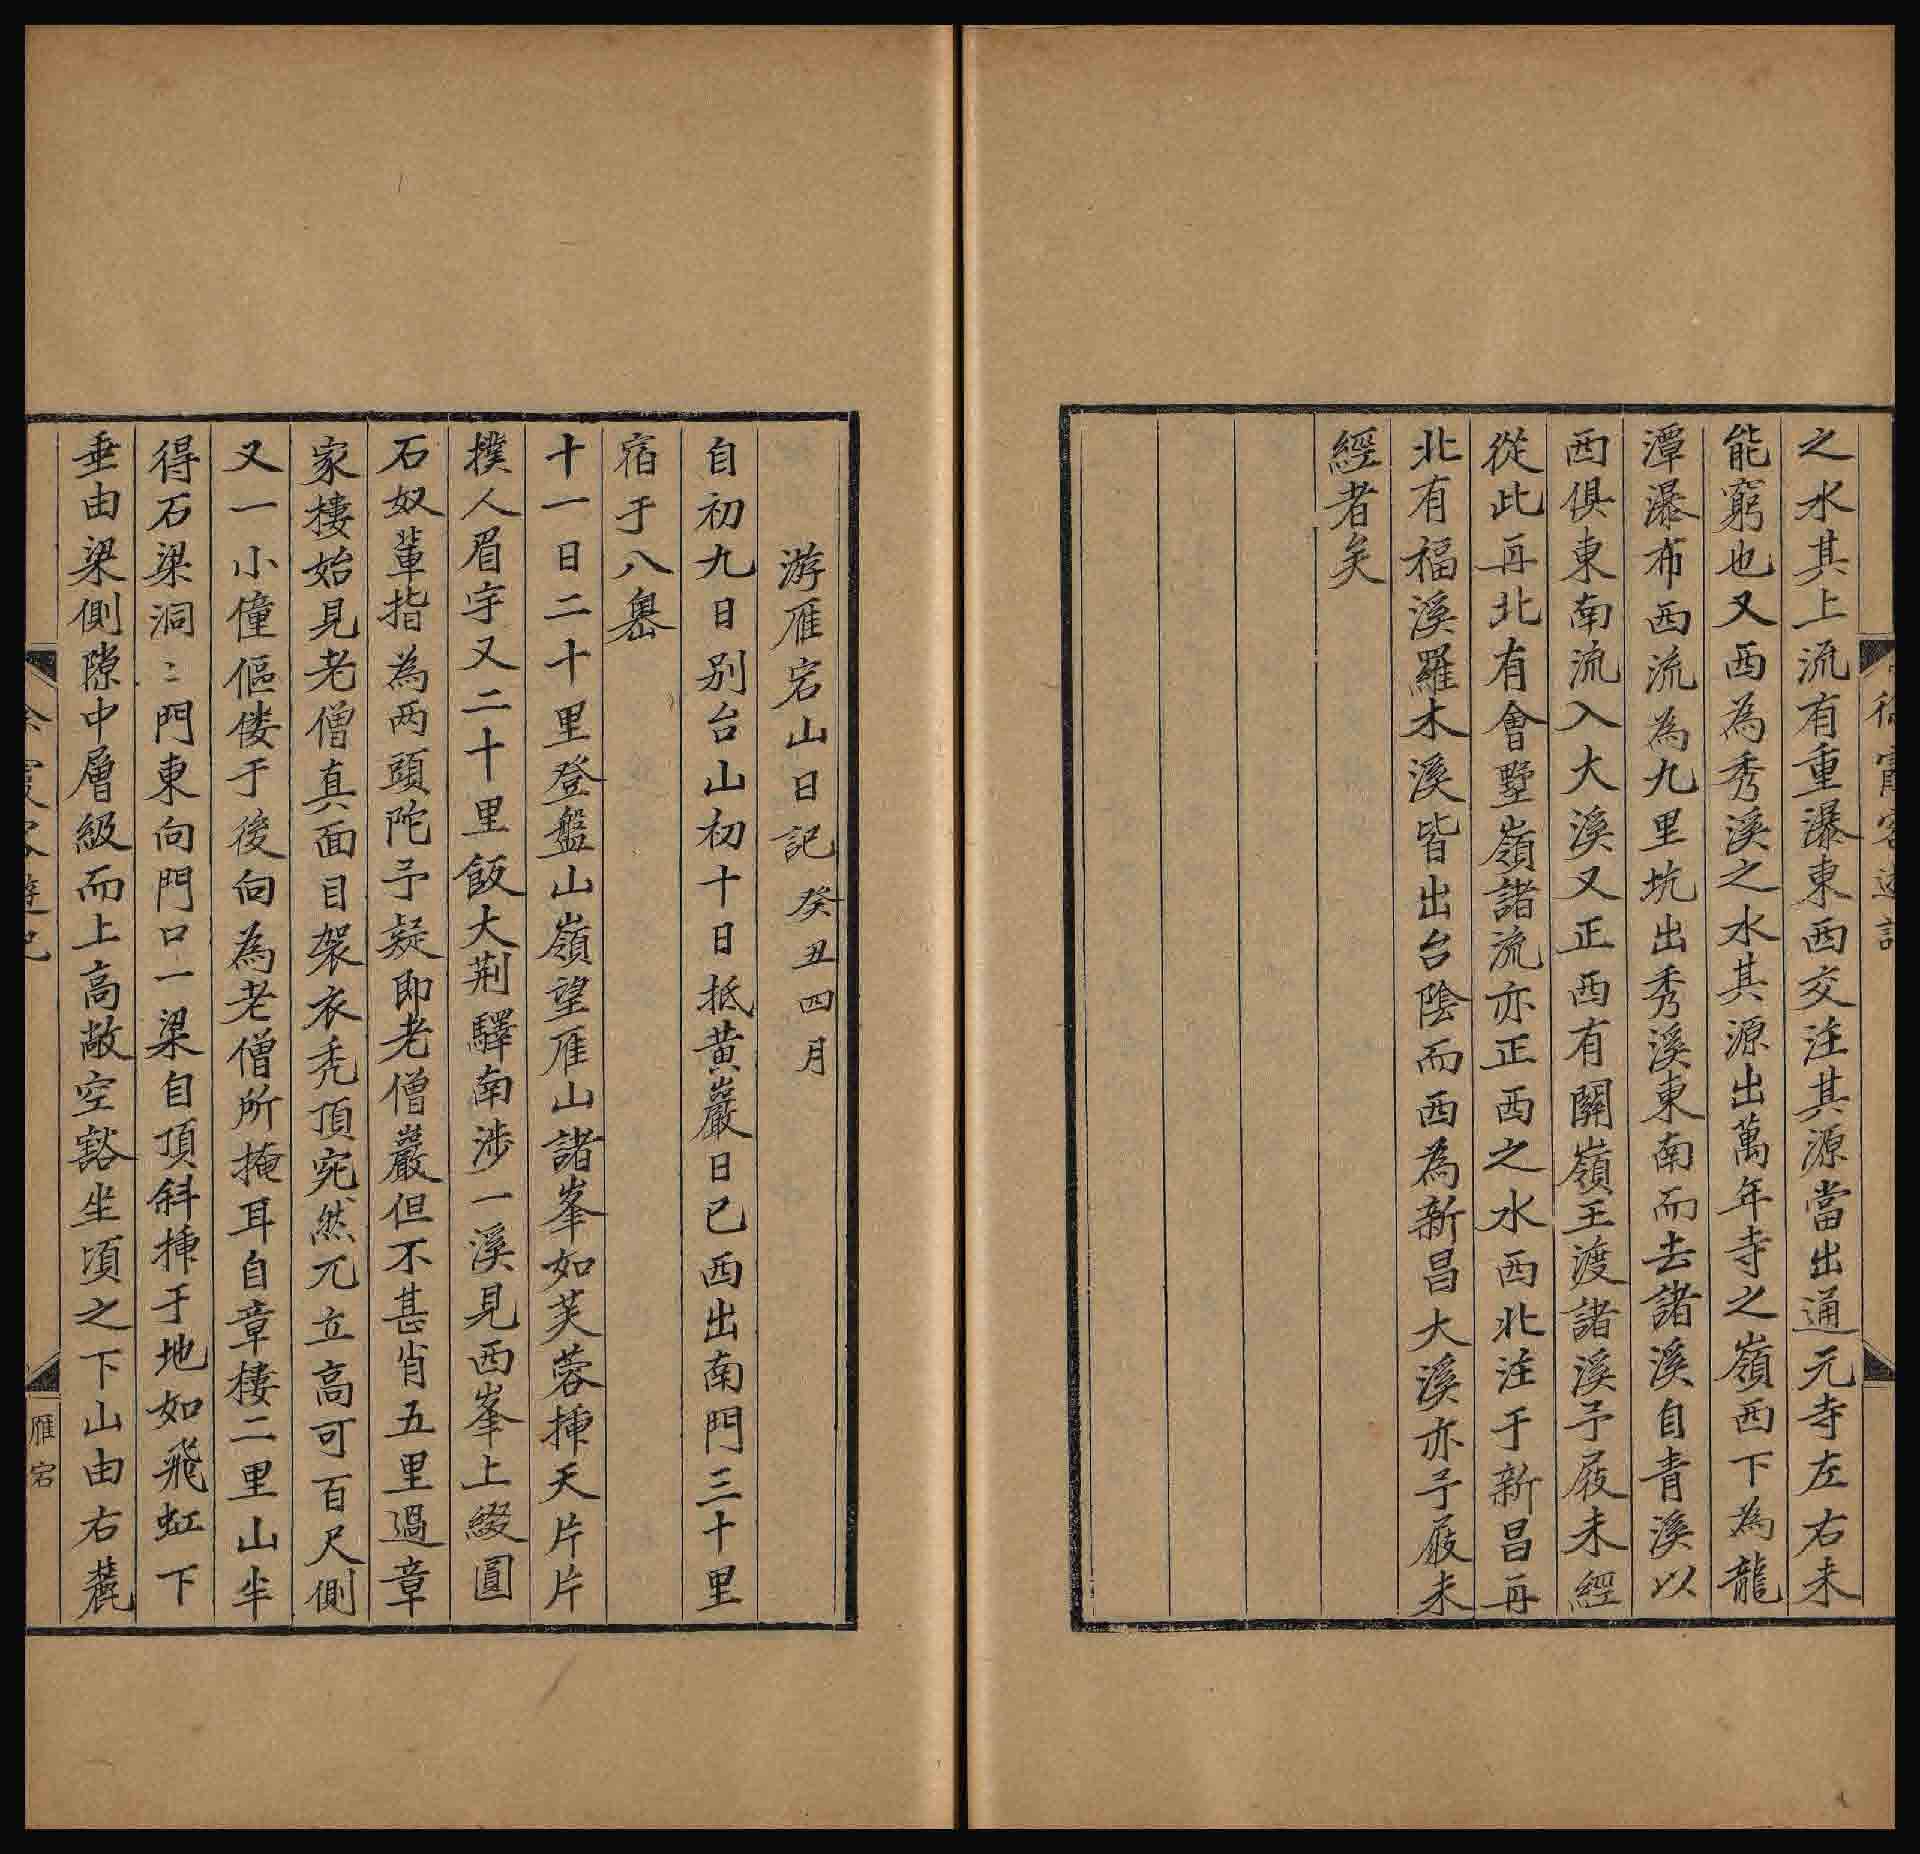 徐霞客遊記
之水其上流有重瀑東西交注其源當出通元寺左右未
能窮也又西為秀溪之水其源出萬年寺之嶺西下為龍
潭瀑布西流為九里坑出秀溪東南而去諸溪自青溪以
西俱東南流入大溪又正西有關嶺王渡諸溪予屐未經
從此再北有會墅嶺諸流亦正西之水西北注于新昌再
北有福溪羅木溪皆出台陰而西為新昌大溪亦予屐未
經者矣
游雁宕山日記 癸丑四月
自初九日別台山初十日抵黃巖日已西出南門三十里
宿于八嶴
十一日二十里登盤山嶺望雁山諸峯如芙蓉揷天片片
撲人眉宇又二十里飯大荆驛南涉一溪見西峯上綴圓
石奴輩指為兩頭陀予疑即老僧巖但不甚肖五里過章
家樓始見老僧真面目袈衣禿頂宛然兀立高可百尺側
又一小僮傴僂于後向為老僧所掩耳自章樓二里山半
得石梁洞〻門東向門口一梁自頂斜揷于地如飛虹下
垂由梁側隙中層級而上高敞空豁坐頃之下山由右麓
徐霞客遊記
雁宕